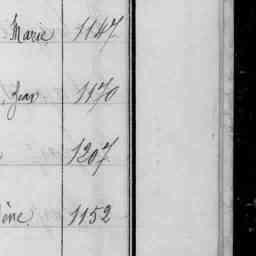 Marie 1147
, Jean 1170
1207
lène, 1152